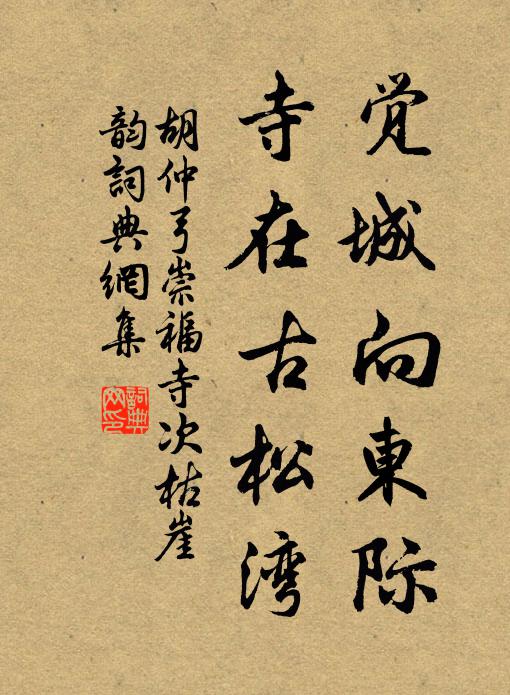 觉城向東际
寺在古松湾
胡仲弓崇福寺次枯崖
韵詞典網集
詞典网印